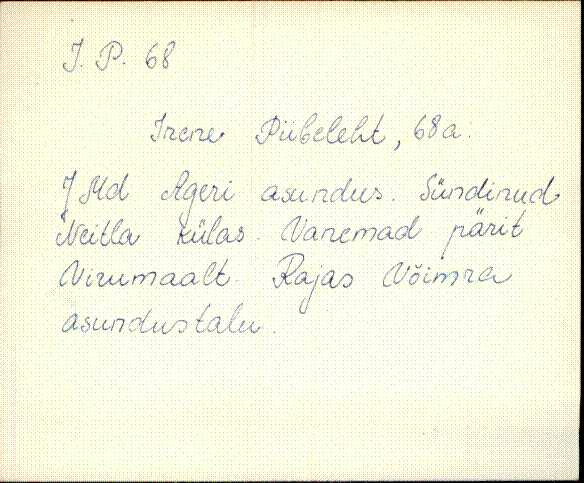 I. P. 68
Irene Püibeleht, 68a.
J Md Ageri asundus. Sündinud
Neitla külas. Vanemad pärit
Virumaalt. Rajas Võimra
asundustalu.